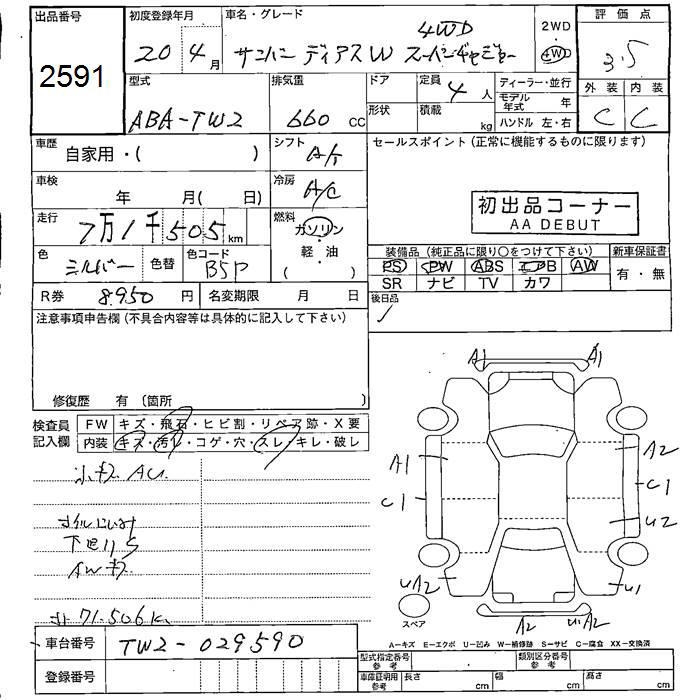 出品番号
2591
初度登録年月
20年4月
車名・グレード
4WD
サンバー ディアスW スーパーチャージャー
2WD
・
4WD
評価点
3.5
型式
ABA-TW2
排気量
660 CC
ドア
形状
定員
4人
積載
kg
ディーラー・並行
モデル年式 年
ハンドル 左・右
外装 内装
C C
車歴
自家用・( )
シフト
A/T
セールスポイント (正常に機能するものに限ります)
車検
年 月( 日)
冷房
A/C
初出品コーナー
AA DEBUT
走行
7万1千505km
燃料
ガソリン
・
軽・油
( )
色
シルバー
色替
色コード
装備品 (純正品に限り○をつけて下さい)
新車保証書
PS PW ABS エアB AW
SR ナビ TV カワ
有・無
R券
8950円
名変期限 月 日
後日品
注意事項申告欄 (不具合内容等は具体的に記入して下さい)
修復歴 有 (箇所 )
検査員
記入欄
FW キズ・飛石・ヒビ割・リペア跡・X要
内装 キズ・汚れ・コゲ・穴・スレ・キレ・破レ
小キズ AU
オイルにじみ
下回りS
AWキズ
71.506K
A1 A1
A1 A2
C1 C1
U2
UA2 U1
A2 U1A2
スペア
A-キズ E-エクボ U-凹み W-補修跡 S-サビ C-腐食 XX-交換済
車台番号
TW2-029590
登録番号
型式指定番号
参考
類別区分番号
参考
車庫証明用
参考
長さ cm
幅 cm
高さ cm